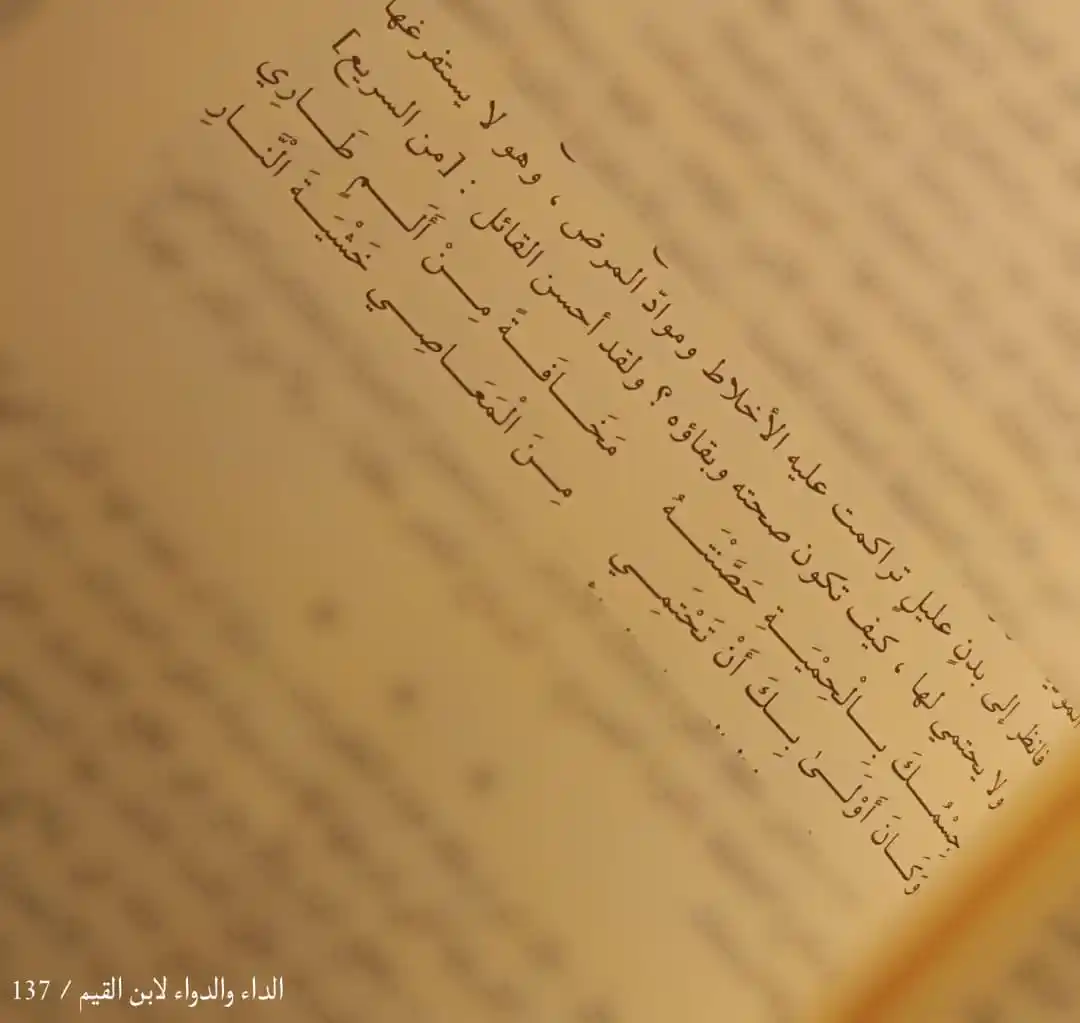 فانظر إلى بدنٍ عليلٍ تراكمت عليه الأخلاط وموادّ المرض ، وهو لا يستفرغها
ولا يحتمي لها ، كيف تكون صحته وبقاؤه ؟ ولقد أحسن القائل : [من السريع]
جِسْمُكَ بِالْحِمْيَةِ حَصَّنْتَهُ مَخَافَةً مِنْ أَلَمٍ طَارِي
وَكَانَ أَوْلَىٰ بِكَ أَنْ تَحْتَمِي مِنَ الْمَعَاصِي خَشْيَةَ النَّارِ
الداء والدواء لابن القيم / 137